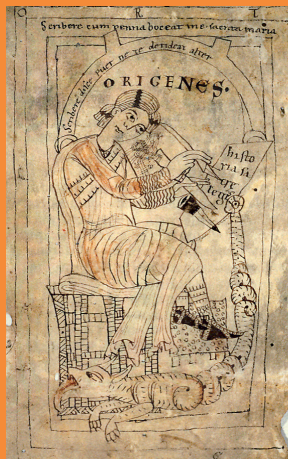 Scribere cum penna doceat me sacra maria
Scribere disce puer ne te derideat alter
ORIGENES·
histo
ria si